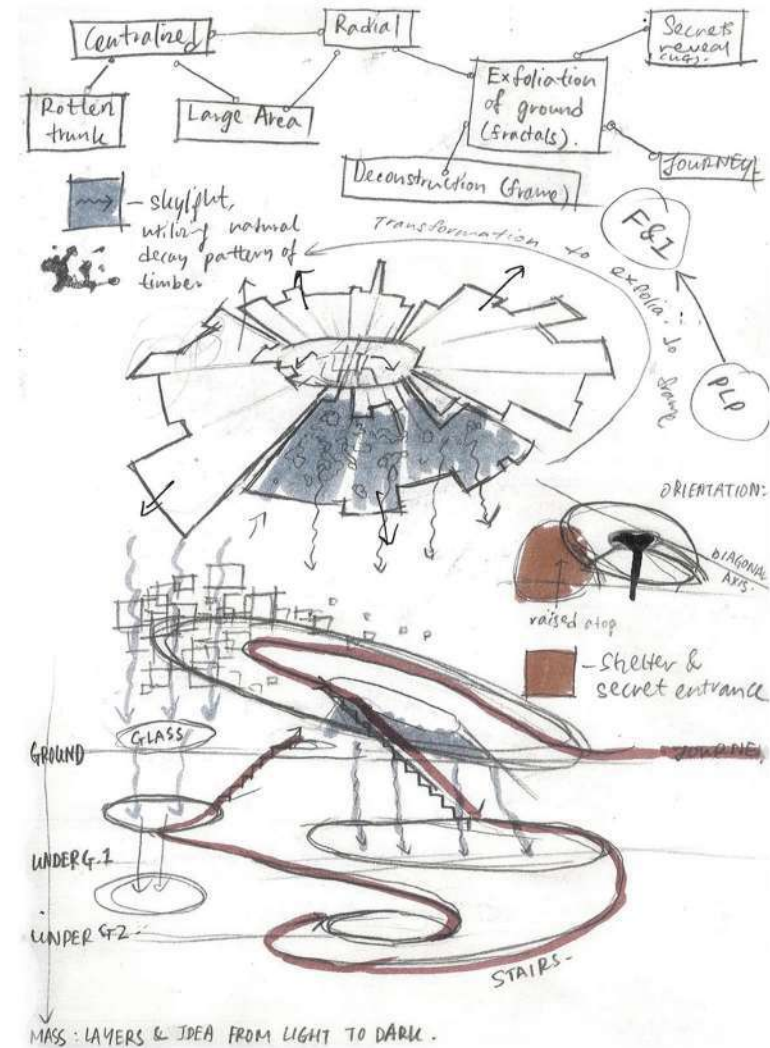 Centralized
Radial
Secrets
reveal
Rotten
trunk
Large Area
Exfoliation
of ground
(fractals).
JOURNEY
Deconstruction (frame)
- skylight,
utilizing natural
decay pattern of
timber
Transformation to exfolia to frame
F&I
PLP
ORIENTATION:
DIAGONAL
AXIS.
raised atop
- Shelter &
secret entrance
GLASS
GROUND
JOURNEY
UNDERG.1
UNDERG2
STAIRS-
MASS: LAYERS & IDEA FROM LIGHT TO DARK.